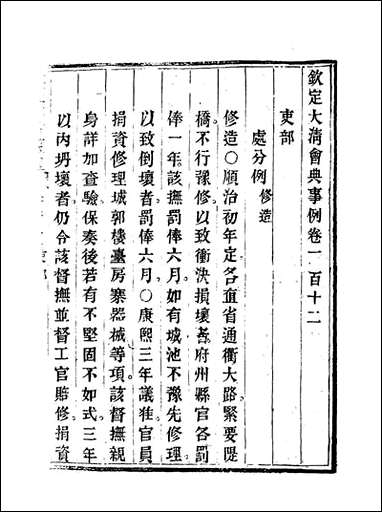 欽定大清會典事例卷一百十二
吏部
處分例 修造
修造○順治初年定各直省通衢大路緊要隄
橋不行豫修以致衝決損壞者府州縣官各罰
俸一年該撫罰俸六月如有城池不豫先修理
以致倒壞者罰俸六月○康熙三年議准官員
捐資修理城郭樓臺房寨器械等項該督撫親
身詳加查驗保奏後若有不堅固不如式三年
以內坍壞者仍令該督撫並督工官賠修捐資